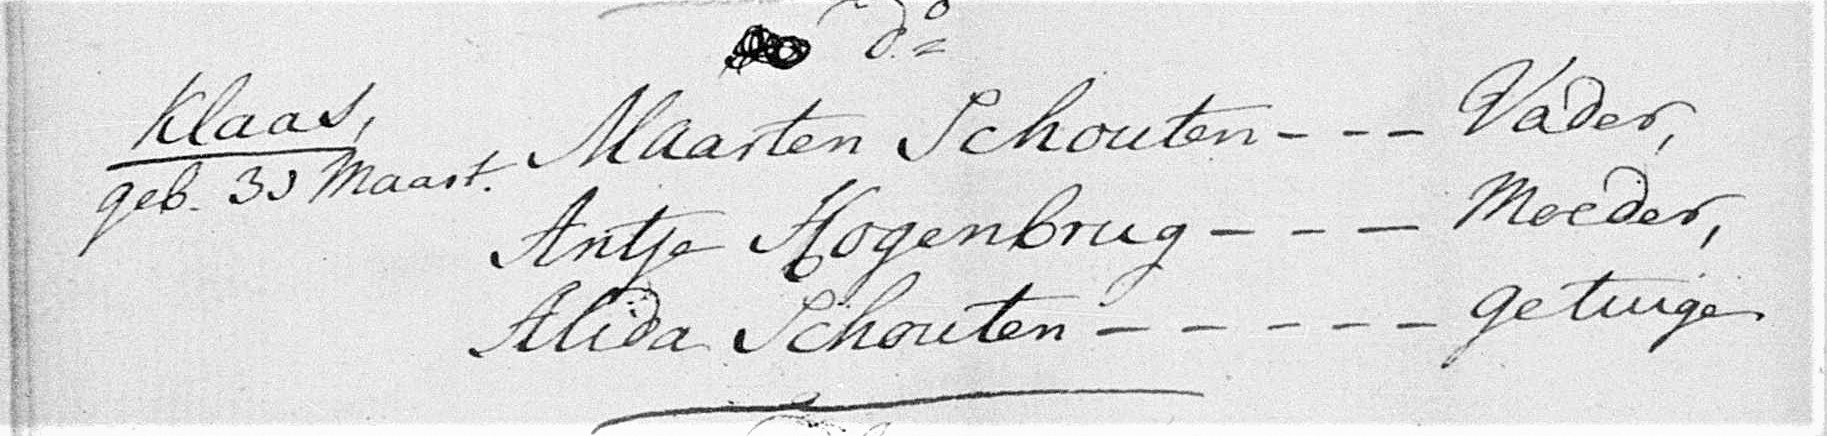 d.º =
Klaas, Maarten Schouten - - - Vader,
geb. 31 Maart. Antje Hogenbrug - - - Moeder,
Alida Schouten - - - - - getuige